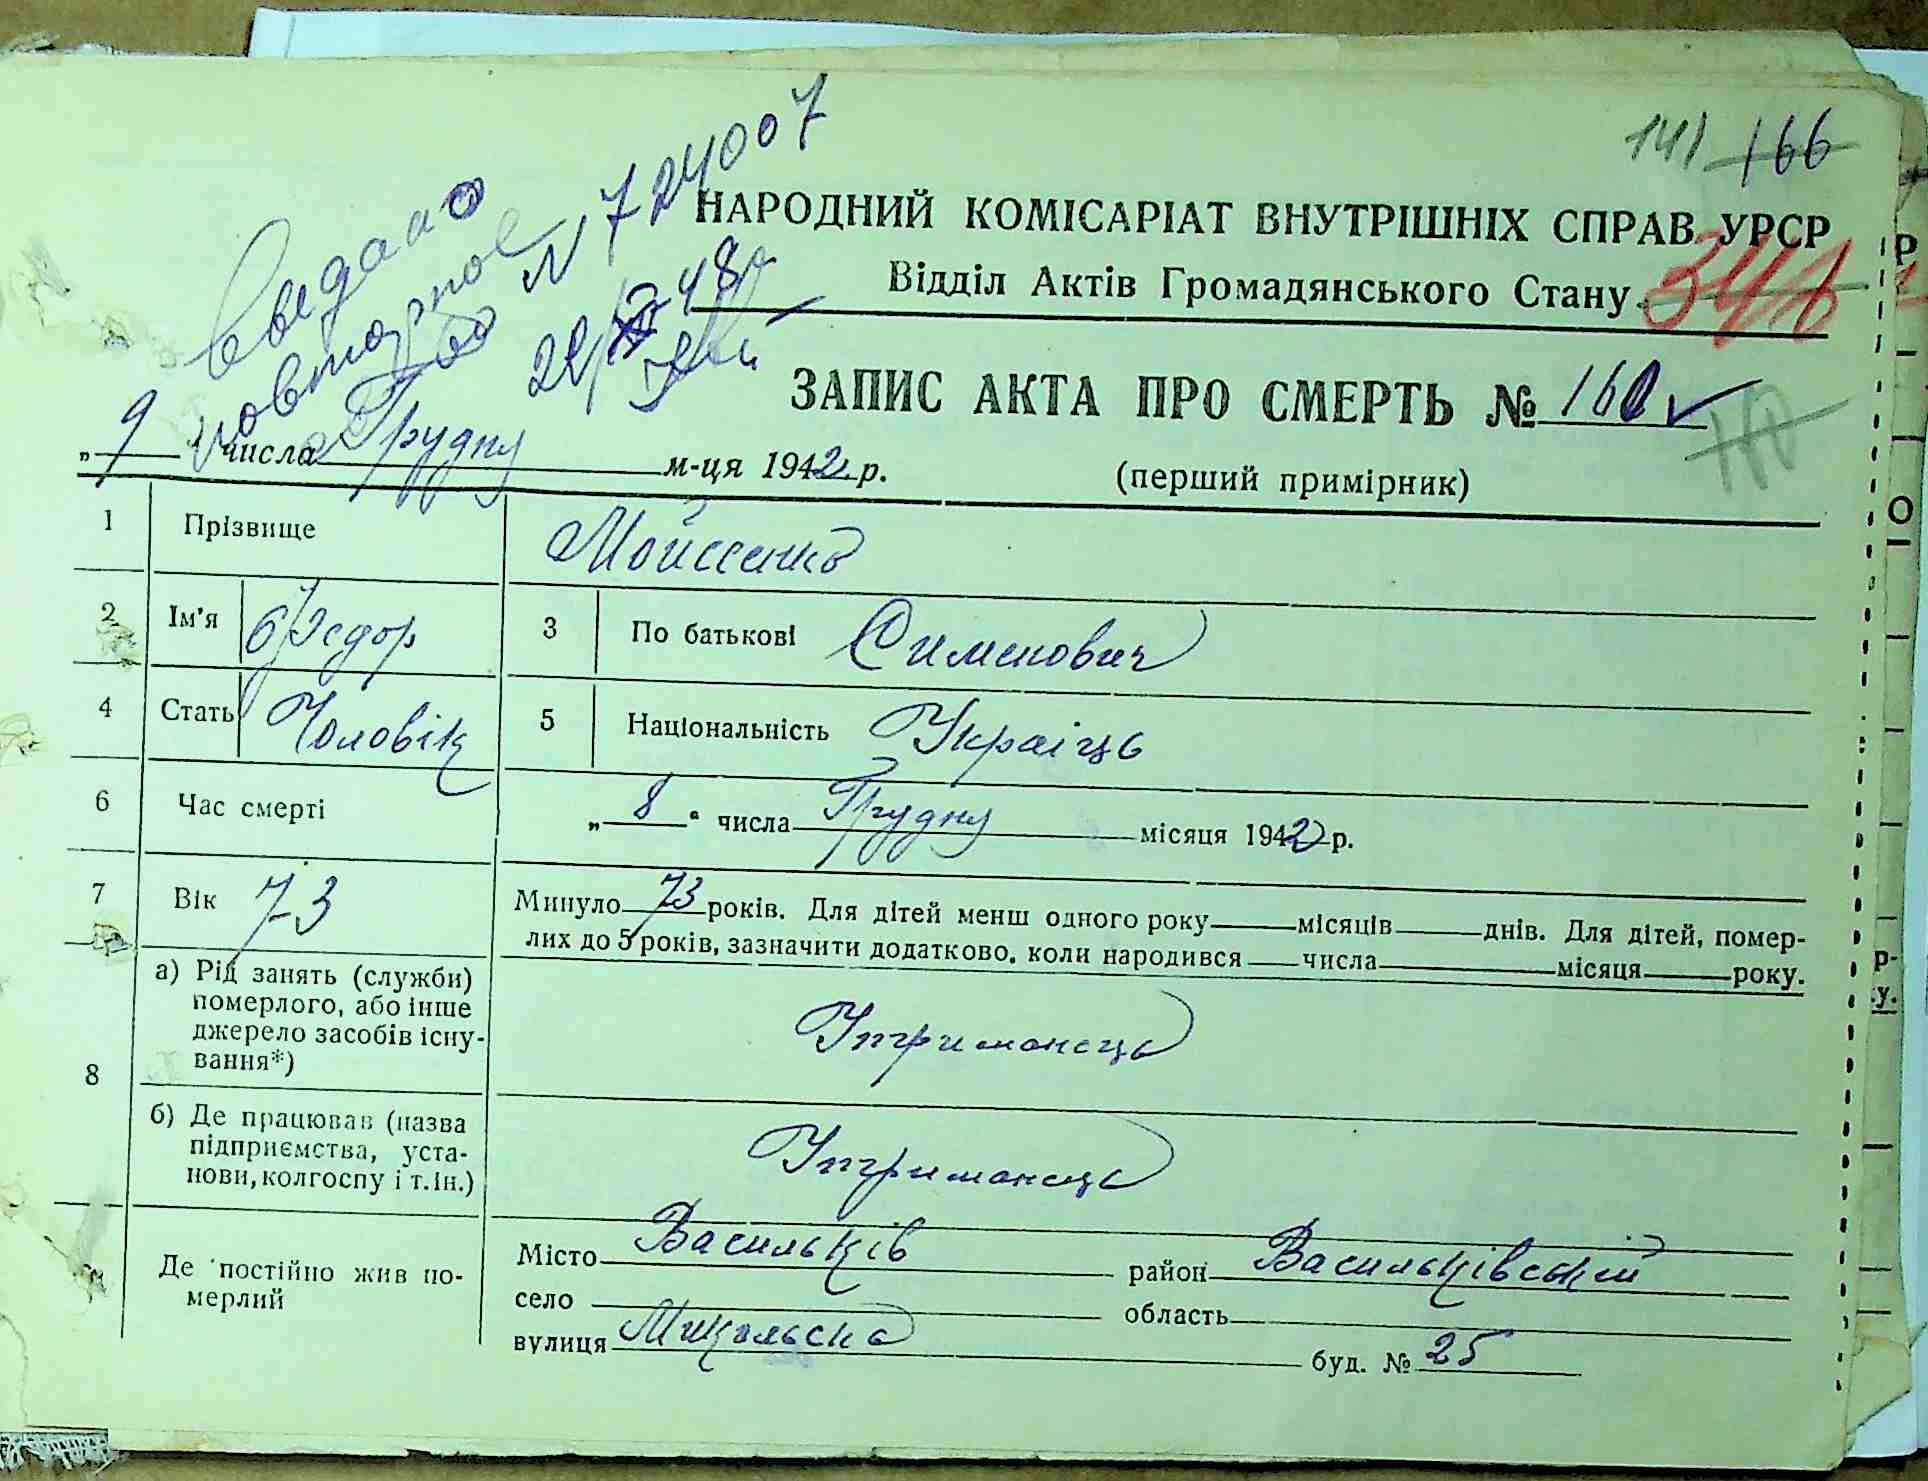 141 166
НАРОДНИЙ КОМІСАРІАТ ВНУТРІШНІХ СПРАВ УРСР
Відділ Актів Громадянського Стану
повторное N 724007
ЗАПИС АКТА ПРО СМЕРТЬ № 160
„ 9 числа Грудня м-ця 1942 р. (перший примірник)
1 Прізвище Мойсеенко
2 Ім'я Федор 3 По батькові Сименович
4 Стать Чоловік 5 Національність Украіць
6 Час смерті „ 8 " числа Грудня місяця 1942 р.
7 Вік 73 Минуло 73 років. Для дітей менш одного року — місяців — днів. Для дітей, помер-
лих до 5 років, зазначити додатково, коли народився — числа — місяця — року.
8 а) Рід занять (служби)
померлого, або інше
джерело засобів існу-
вання*)
Утриманець
б) Де працював (назва
підприємства, уста-
нови, колгоспу і т. ін.)
Утриманець
Де постійно жив по-
мерлий
Місто Васильків район Васильківський
село область
вулиця Микільська буд. № 25